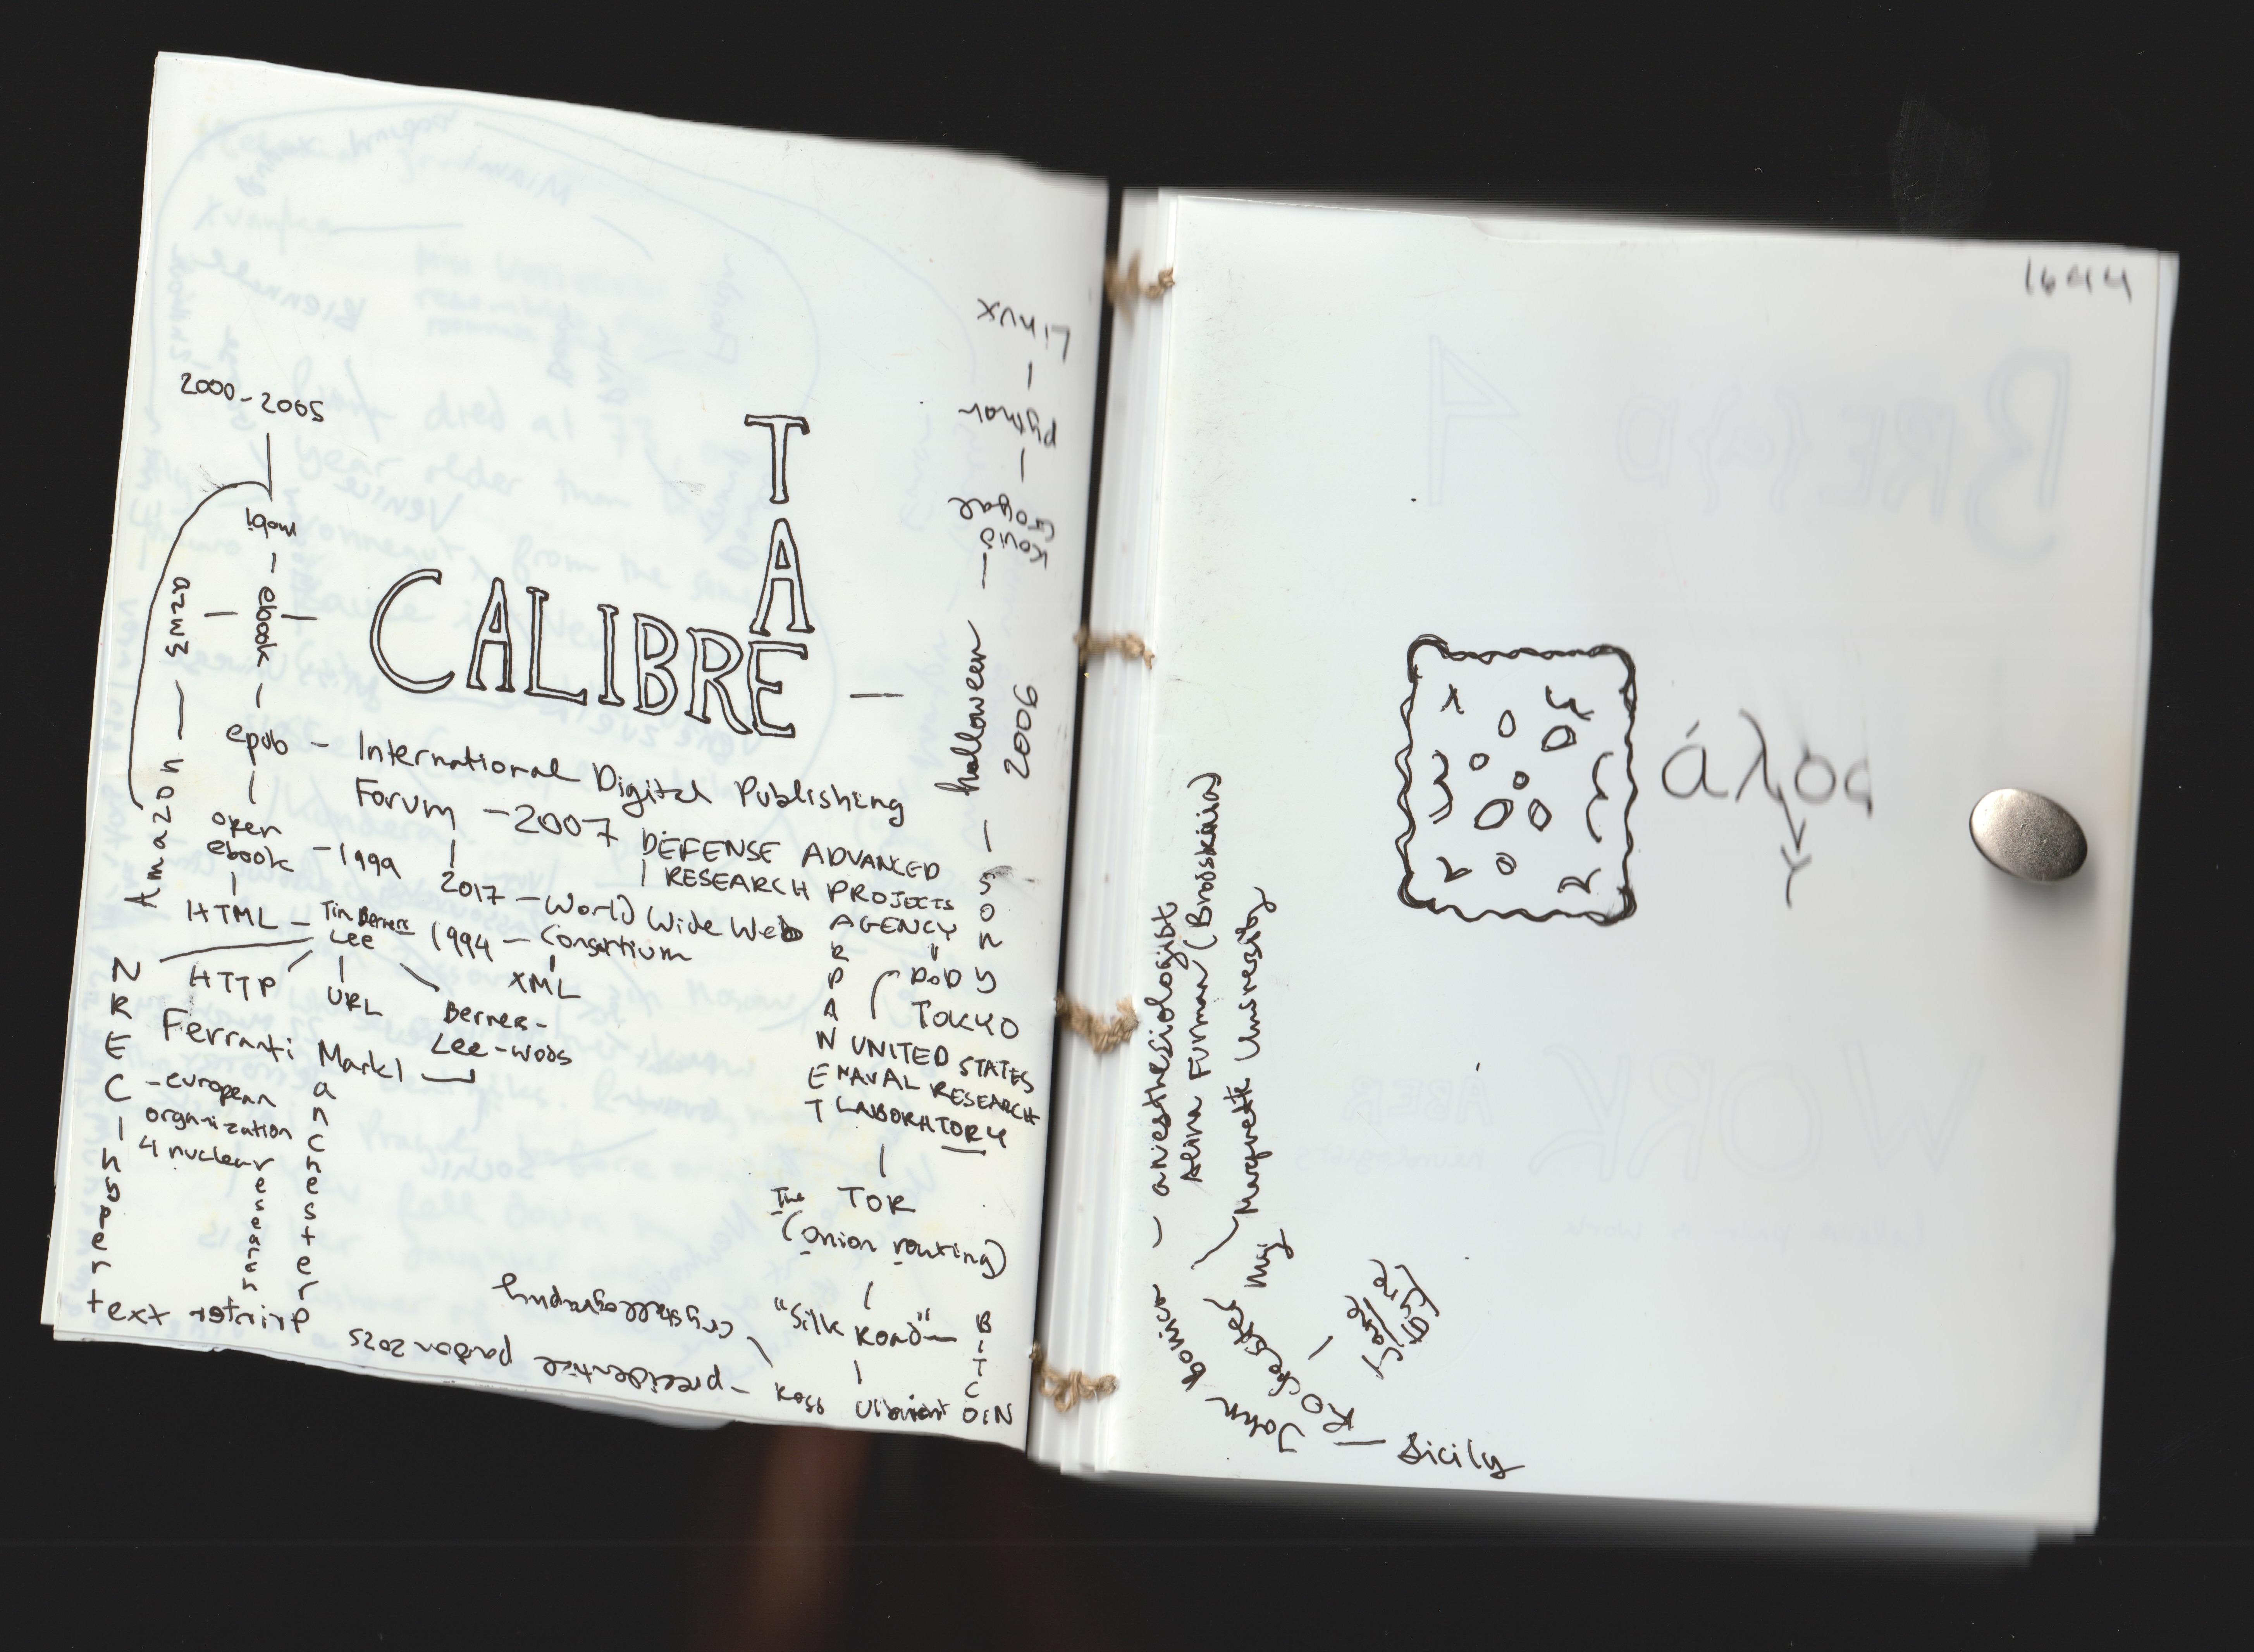 2000-2005
mobi
azw3
ebook
TATE
CALIBRE
epub - International Digital Publishing
Forum - 2007
Amazon
open
ebook - 1999
2017 - World Wide Web
1994 - Consortium
XML
HTML - Tim Berners
Lee
HTTP
URL
Berners-
Lee-Woods
Ferranti Mark 1
Manchester
NREC
- european
organization
4 nuclear
research
text printer
DEFENSE ADVANCED
RESEARCH PROJECTS
AGENCY
ARPANET
DoD
SONY
TOKYO
UNITED STATES
NAVAL RESEARCH
LABORATORY
The TOR
(onion routing)
"Silk Road" - BITCOIN
Ross Ulbricht
- presidential pardon 2025
crystallography
halloween
2006
Kovid
Goyal
python
Linux
1644
άλος
γ
anesthesiologist
Alina Furman (Brodskaia)
Marquette University
John Bonica
Rochester
Sicily